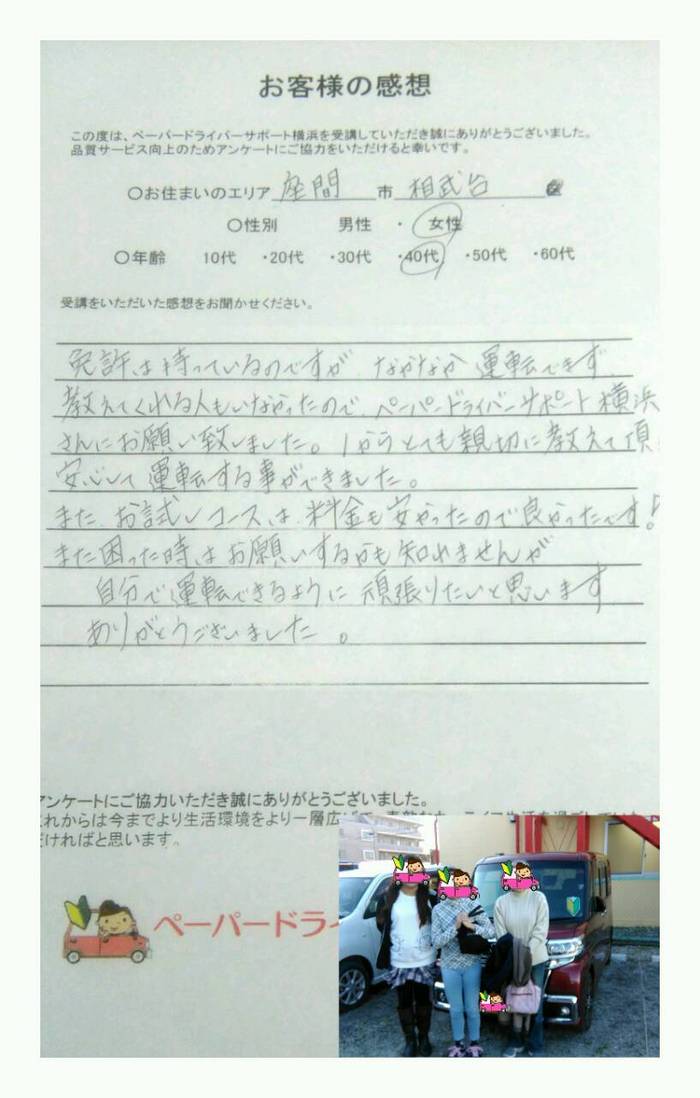 お客様の感想
この度は、ペーパードライバーサポート横浜を受講していただき誠にありがとうございました。
品質サービス向上のためアンケートにご協力をいただけると幸いです。
○お住まいのエリア 座間 市 相武台
○性別 男性 ・ 女性
○年齢 10代 ・20代 ・30代 ・40代 ・50代 ・60代
受講をいただいた感想をお聞かせください。
免許は持っているのですが、なかなか運転できず、
教えてくれる人もいなかったので、ペーパードライバーサポート横浜
さんにお願い致しました。1からとても親切に教えて頂
安心して運転する事ができました。
また、お試しコースは、料金も安かったので良かったです!
また困った時はお願いするかも知れませんが
自分で運転できるように頑張りたいと思います
ありがとうございました。
アンケートにご協力いただき誠にありがとうございました。
これからは今までより生活環境をより一層広
だければと思います。
ペーパードライ